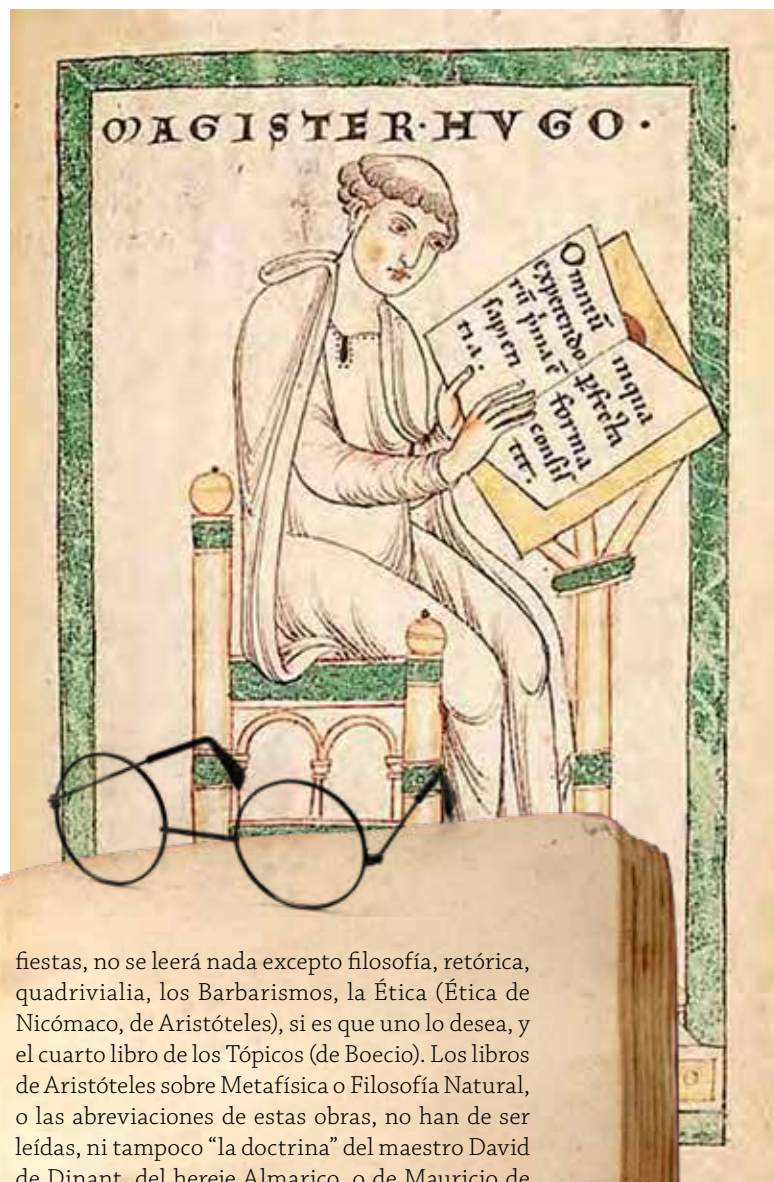 MAGISTER·HVGO·
Omniū
expetendo
rū p̄ma ē
sapien
tia.
inqua
forma
consis
tit.
fiestas, no se leerá nada excepto filosofía, retórica,
quadrivialia, los Barbarismos, la Ética (Ética de
Nicómaco, de Aristóteles), si es que uno lo desea, y
el cuarto libro de los Tópicos (de Boecio). Los libros
de Aristóteles sobre Metafísica o Filosofía Natural,
o las abreviaciones de estas obras, no han de ser
leídas, ni tampoco “la doctrina” del maestro David
de Dinant, del hereje Almarico, o de Mauricio de